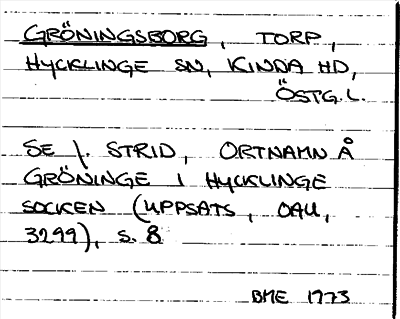 GRÖNINGSBORG, TORP,
HYCKLINGE SN, KINDA HD,
ÖSTG. L.
SE J. STRID, ORTNAMN Å
GRÖNINGE I HYCKLINGE
SOCKEN (UPPSATS, OAU,
3299), S. 8
BME 1973